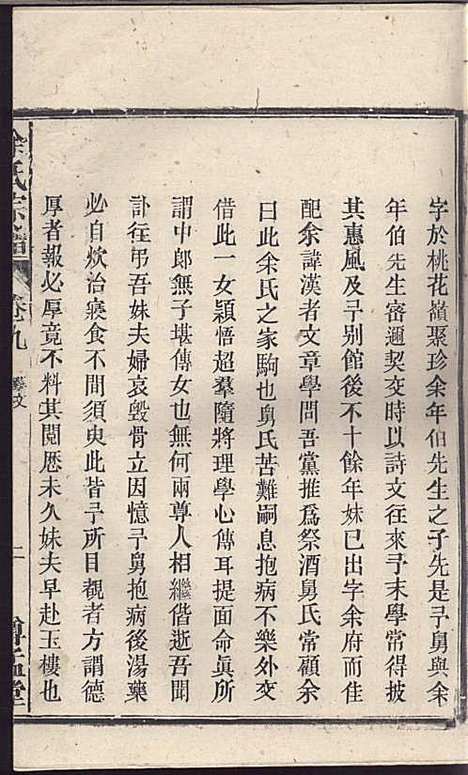 字於桃花嶺聚珍余年伯先生之子先是予舅與余
年伯先生審邇契交時以詩文往來予末學常得披
其惠風及予別館後不十餘年妹已出字余府而佳
配余諱漢者文章學問吾黨推爲祭酒舅氏常顧余
曰此余氏之家駒也舅氏苦難嗣息抱病不樂外交
借此一女穎悟超羣隨將理學心傳耳提面命眞所
謂中郎無子堪傳女也無何兩尊人相繼偕逝吾聞
訃往弔吾妹夫婦哀毀骨立因憶予舅抱病後湯藥
必自炊治寢食不間須臾此皆予所目覩者方謂德
厚者報必厚竟不料其閱厯未久妹夫早赴玉樓也
余氏宗譜
卷九
二